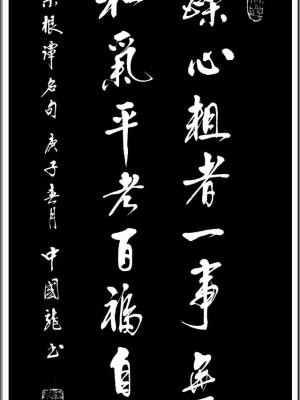 燥心粗者一事無
和氣平者百福自
菜根譚名句 庚子春月 中國龍书